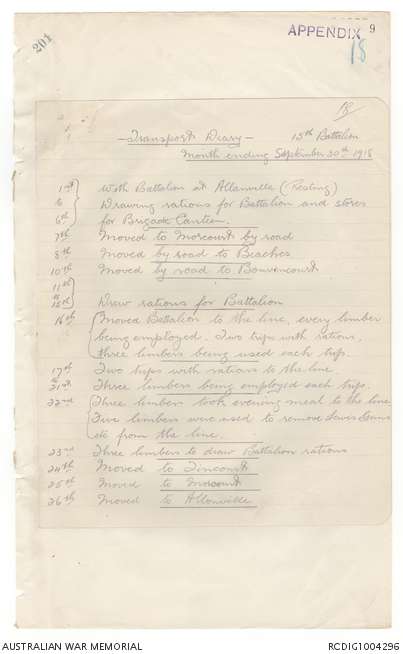 201
APPENDIX 9
18
18
- Transport Diary - 15th Battalion
Month ending September 30th 1918
1st With Battalion at Allonville (Resting)
to Drawing rations for Battalion and stores
6th for Brigade Canteen.
7th Moved to Morcourt by road
8th Moved by road to Beaches
10th Moved by road to Bouvencourt
11th
to
15th Drew rations for Battalion
16th Moved Battalion to the line, every limber
being employed. Two trips with rations,
three limbers being used each trip.
17th Two trips with rations to the line.
to
21st Three limbers being employed each trip.
22nd Three limbers took evening meal to the line
Five limbers were used to remove Lewis Guns
etc from the line.
23rd Three limbers to draw Battalion rations
24th Moved to Tincourt
25th Moved to Morcourt
26th Moved to Allonville
AUSTRALIAN WAR MEMORIAL RCDIG1004296